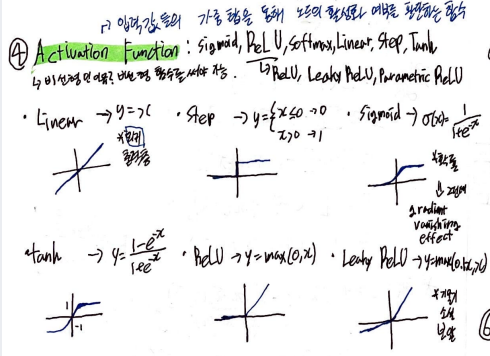 ↱ 입력값들의 가중합을 통해 노드의 활성화 여부를 판단하는 함수
④ Activation Function : Sigmoid, ReLU, Softmax, Linear, Step, Tanh
↳ 비선형인 이유? 비선형 함수를 써야 가능. ↳ ReLU, Leaky ReLU, Parametric ReLU
· Linear → y=x · Step → y={x≤0 →0 x>0 →1 · Sigmoid → σ(x)= 1/1+e^-x
*회귀
*확률
⇓
gradient
vanishing
effect
·tanh → y= 1-e^-x/1+e^-x · ReLU → y=max(0,x) · Leaky ReLU → y=max(0.1x,x)
1
-1
*기울기
소실
보완